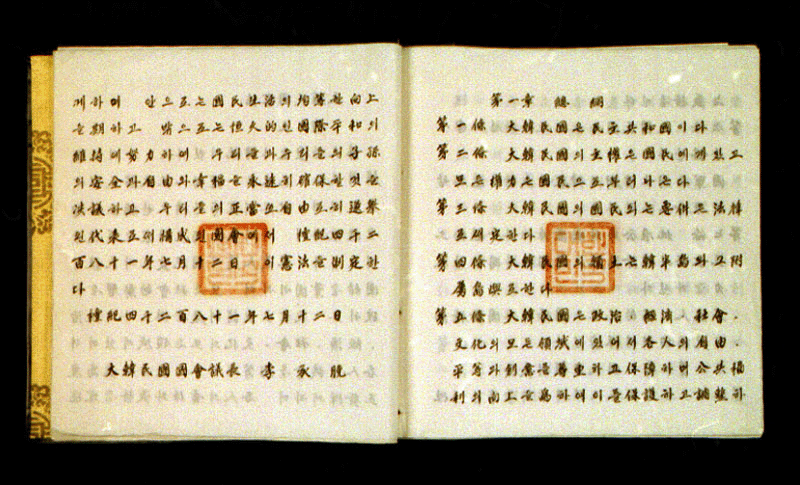 게하여 안으로는國民生活의均等한向上
을期하고 밖으로는恒久的인國際平和의
維持에努力하여우리들과우리들의子孫
의安全과自由와幸福을永遠히確保할것을
決議하고우리들의正當또自由로히選擧
된代表로서構成된國會에서 檀紀四千二
百八十一年七月十二日이憲法을制定한
다
檀紀四千二百八十一年七月十二日
大韓民國國會議長 李 承 晩
第一章 總 綱
第一條 大韓民國은民主共和國이다
第二條 大韓民國의主權은國民에게있고
모든權力은國民으로부터나온다
第三條 大韓民國의國民되는要件은法律
로써定한다
第四條 大韓民國의領土는韓半島와그附
屬島嶼로한다
第五條 大韓民國은政治、經濟、社會、
文化의모든領域에있어서各人의自由、
平等과創意를尊重하고保障하며公共福
利의向上을爲하여이를保護하고調整하